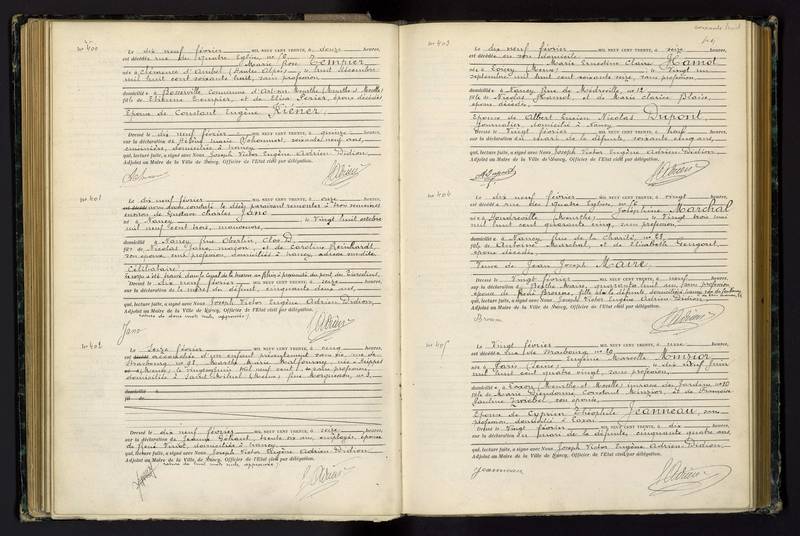 No 400
Le dix neuf février MIL NEUF CENT TRENTE, à douze heures,
est décédée rue des Quatre Eglises, no
Marie Rose Tempier
née à Clémence d'Ambel (Hautes Alpes) le huit décembre
mil huit cent soixante huit, sans profession
domiciliée à Bosserville commune d'Art-sur-Meurthe (Meurthe et Moselle)
fille de Etienne Tempier, et de Elisa Périer, époux décédés
Epouse de Constant Eugène Riener
Dressé le dix neuf février MIL NEUF CENT TRENTE, à quinze heures,
sur la déclaration de
domiciliée à Nancy
qui, lecture faite, a signé avec Nous Joseph Victor Eugène Adrien Didion
Adjoint au Maire de la Ville de Nancy, Officier de l'Etat civil par délégation.
No 401
Le dix neuf février MIL NEUF CENT TRENTE, à heures,
a été constaté le décès paraissant remonter à trois semaines
environ de Gustave Charles Jano
né à Nancy le Vingt huit octobre
mil neuf cent trois, manœuvre,
domicilié à Nancy, rue Oberlin, Clos D
fils de Nicolas Jano, maçon, et de Caroline Reinhardt,
son épouse, sans profession, domiciliés à Nancy
Célibataire
Dressé le dix neuf février MIL NEUF CENT TRENTE, à seize heures,
sur la déclaration de la mère du défunt, cinquante deux ans,
qui, lecture faite, a signé avec Nous Joseph Victor Eugène Adrien Didion
Adjoint au Maire de la Ville de Nancy, Officier de l'Etat civil par délégation.
Jano
No 402
Le seize février MIL NEUF CENT TRENTE, à cinq heures,
est accouchée d'un enfant présentement sans vie, rue de
Strasbourg no
(Meuse) le mil neuf cent sans profession,
domiciliée à Saint Mihiel (Meuse)
domicilié
fil de
Dressé le dix neuf février MIL NEUF CENT TRENTE, à seize heures,
sur la déclaration de trente six ans, employée, épouse
de René domiciliée à Nancy
qui, lecture faite, a signé avec Nous Joseph Victor Eugène Adrien Didion
Adjoint au Maire de la Ville de Nancy, Officier de l'Etat civil par délégation.
soixante huit
No 403
Le dix neuf février MIL NEUF CENT TRENTE, à seize heures,
est décédée en son domicile
Marie Ernestine Claire Hamot
née à (Meuse) le Vingt un
septembre mil huit cent soixante seize, sans profession,
domiciliée à Nancy, Rue de Médreville, no 12
fille de Nicolas Hamot, et de Marie Clarice Blaise,
époux décédés,
Epouse de Albert Lucien Nicolas Dupont,
Journalier domicilié à Nancy
Dressé le Vingt février MIL NEUF CENT TRENTE, à neuf heures,
sur la déclaration du mari de la défunte, soixante cinq ans,
qui, lecture faite, a signé avec Nous Joseph Victor Eugène Adrien Didion
Adjoint au Maire de la Ville de Nancy, Officier de l'Etat civil par délégation.
No 404
Le dix neuf février MIL NEUF CENT TRENTE, à vingt heures,
est décédée rue des Quatre Eglises, no
Joséphine Marchal
née à Houdreville (Meurthe) le Vingt trois mai
mil huit cent quarante cinq, sans profession,
domiciliée à Nancy, rue de la Charité, no
fille de Antoine Marchal, et de Elisabeth Gengout,
époux décédés,
Veuve de Jean Joseph Maire
Dressé le Vingt février MIL NEUF CENT TRENTE, à neuf heures,
sur la déclaration de Berthe Maire, quarante huit ans, sans profession
épouse de René fille de la défunte, domiciliée
qui, lecture faite, a signé avec Nous Joseph Victor Eugène Adrien Didion
Adjoint au Maire de la Ville de Nancy, Officier de l'Etat civil par délégation.
No 405
Le Vingt février MIL NEUF CENT TRENTE, à heures,
est décédée rue de Strasbourg no
Eugénie Marcelle
née à Paris (Seine) le dix neuf Juin
mil huit cent quatre vingt, sans profession,
domiciliée à Laxou (Meurthe et Moselle)
fille de Marie Dieudonné Constant et de Françoise
Pauline son épouse,
Epouse de Cyprien Théophile Jeanneau, sans
profession, domicilié à Laxou
Dressé le Vingt février MIL NEUF CENT TRENTE, à dix heures,
sur la déclaration du mari de la défunte, cinquante quatre ans,
qui, lecture faite, a signé avec Nous Joseph Victor Eugène Adrien Didion
Adjoint au Maire de la Ville de Nancy, Officier de l'Etat civil par délégation.
Jeanneau